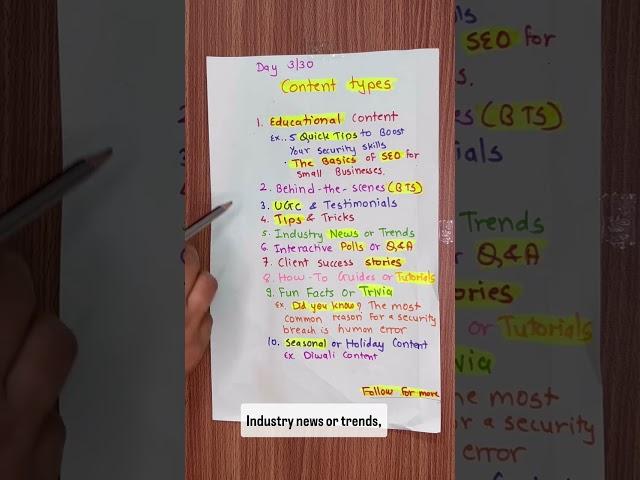 Day 3/30
Content types
1. Educational Content
Ex.. 5 Quick Tips to Boost
Your security skills
• The Basics of SEO for
small Businesses.
2. Behind-the-scenes (BTS)
3. UGC & Testimonials
4. Tips & Tricks
5. Industry News or Trends
6. Interactive Polls or Q&A
7. Client success stories
8. How-To Guides or Tutorials
9. Fun Facts or Trivia
Ex. Did you know? The most
common reason for a security
breach is human error
10. Seasonal or Holiday Content
Ex. Diwali Content
Follow for more
Industry news or trends,
SEO for
s.
es (BTS)
ials
Trends
Q&A
ories
or Tutorials
via
he most
r a security
error